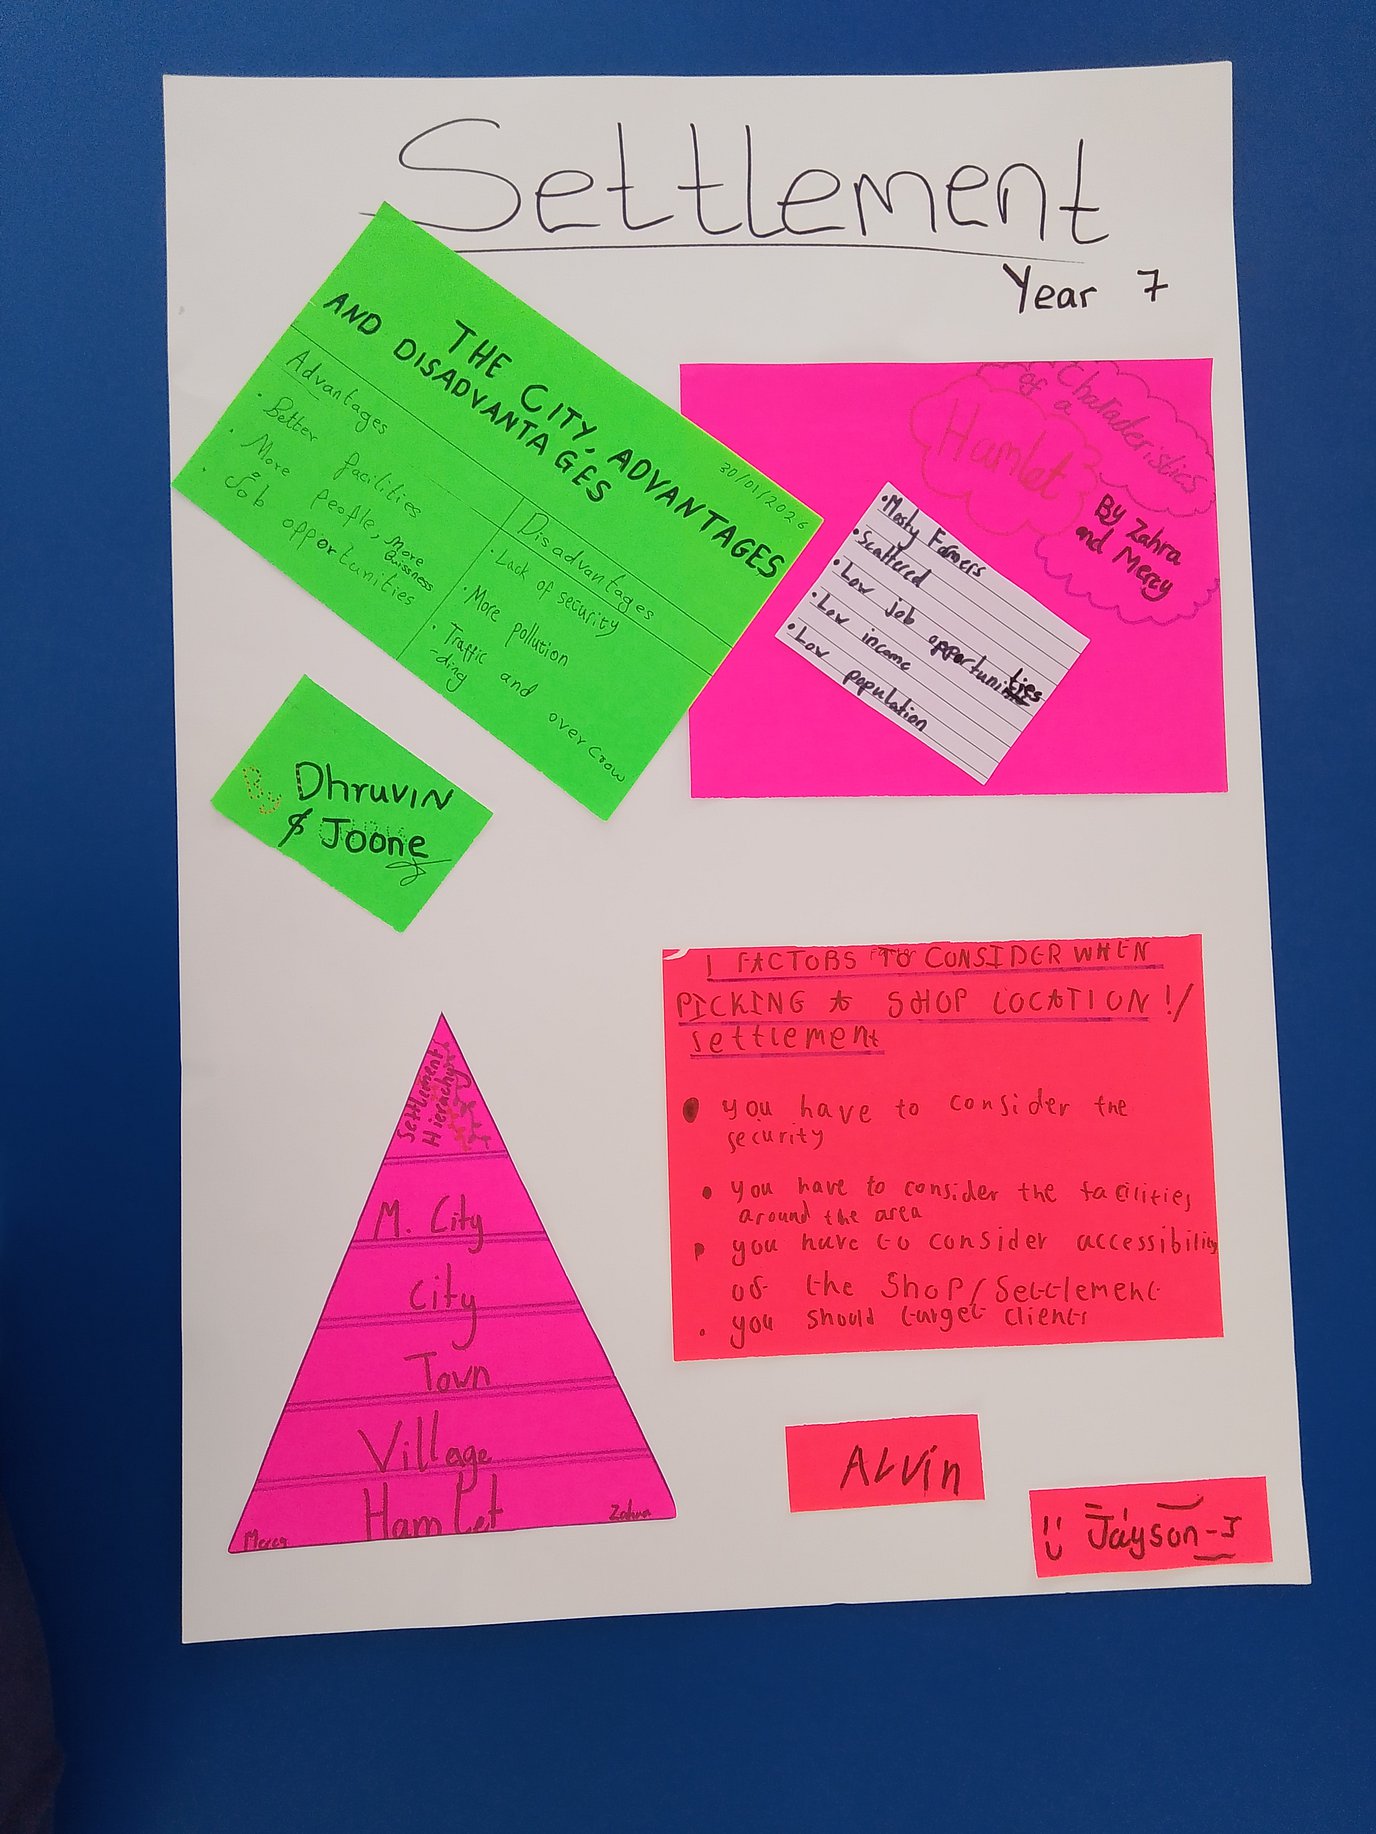 Settlement
Year 7
30/01/2026
THE CITY, ADVANTAGES
AND DISADVANTAGES
Advantages
• Better facilities
• More people, more
buissness
• Job opportunities
Disadvantages
• Lack of security
• More pollution
• Traffic and overcrow
-ding
By Dhruvin
& Joone
Charaderistics
of a
Hamlet
By Zahra
and Mercy
• Mosty Farmers
• Scattered
• Low job opportunities
• Low income
• Low population
Settlement
Hierachy
M. City
City
Town
Village
Hamlet
Mercy
Zahra
FACTORS TO CONSIDER WHEN
PICKING A SHOP LOCATION!/
settlement
• you have to consider the
security
• you have to consider the facilities
around the area
• you have to consider accessibility
of the Shop/Settlement
• you should target clients
Alvin
Jayson-J